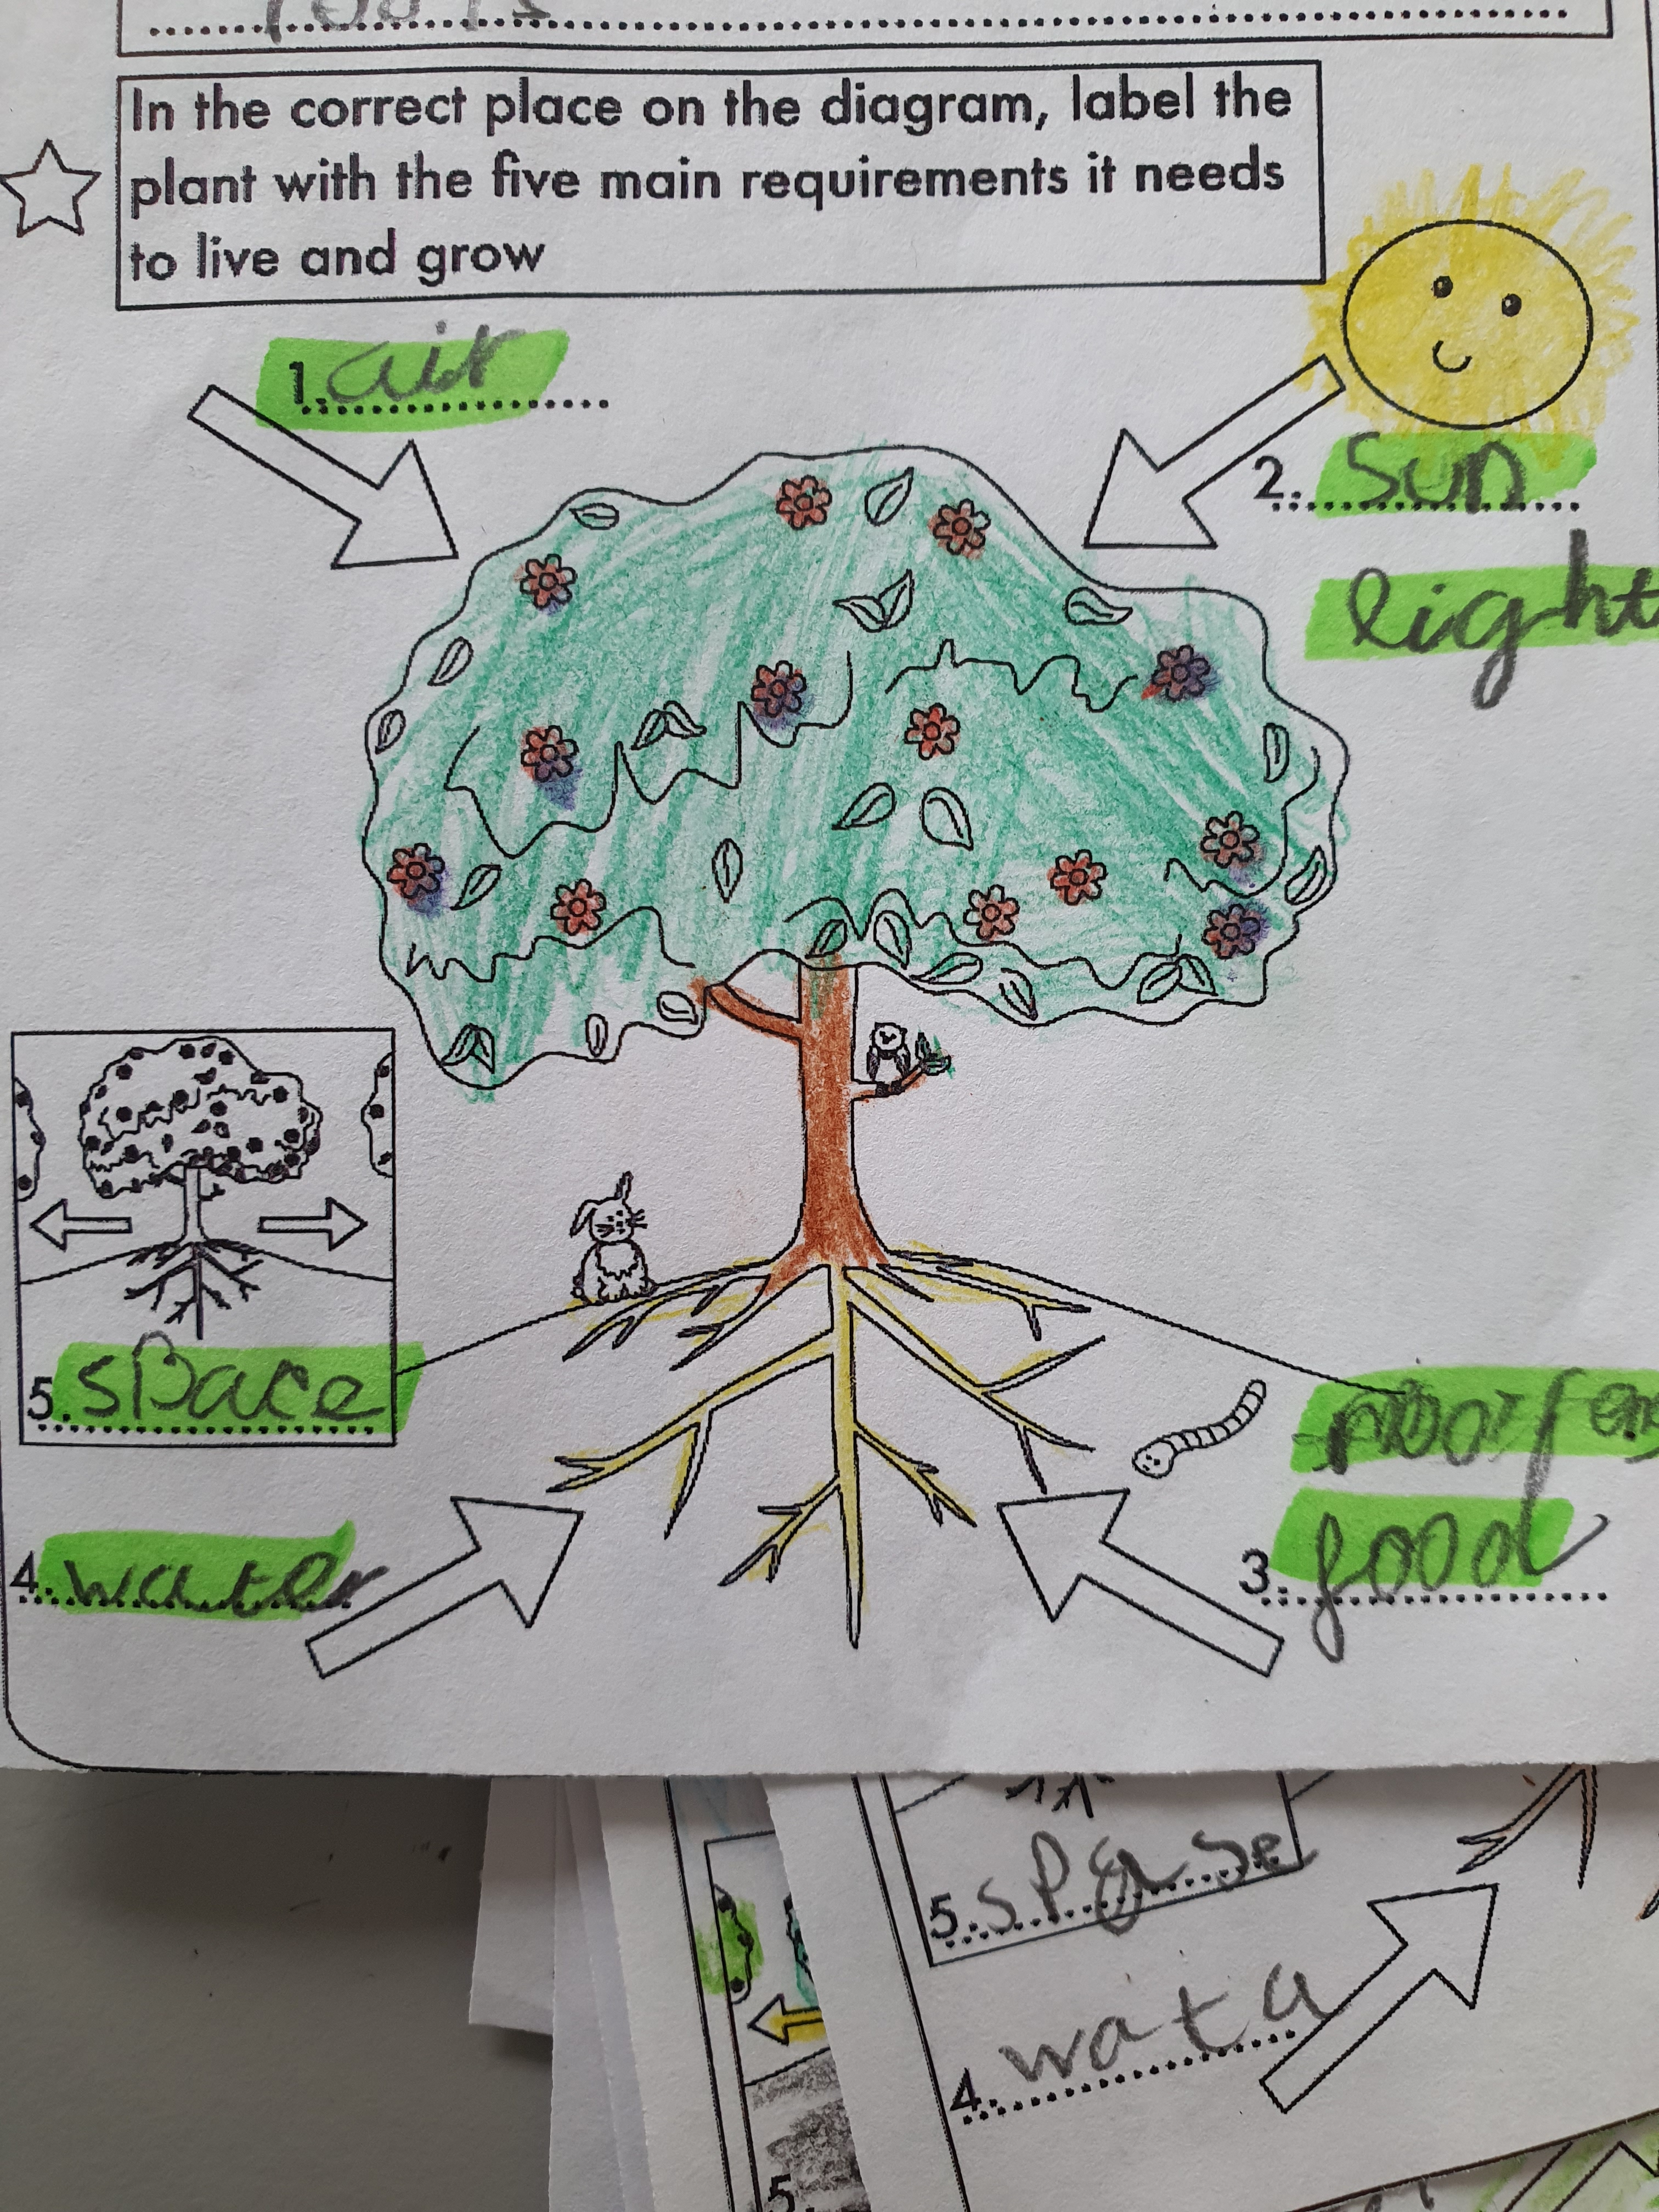 In the correct place on the diagram, label the
plant with the five main requirements it needs
to live and grow
1. air
2. Sun
light
5. space
3. food
4. water
5. spase
4. wata
5.